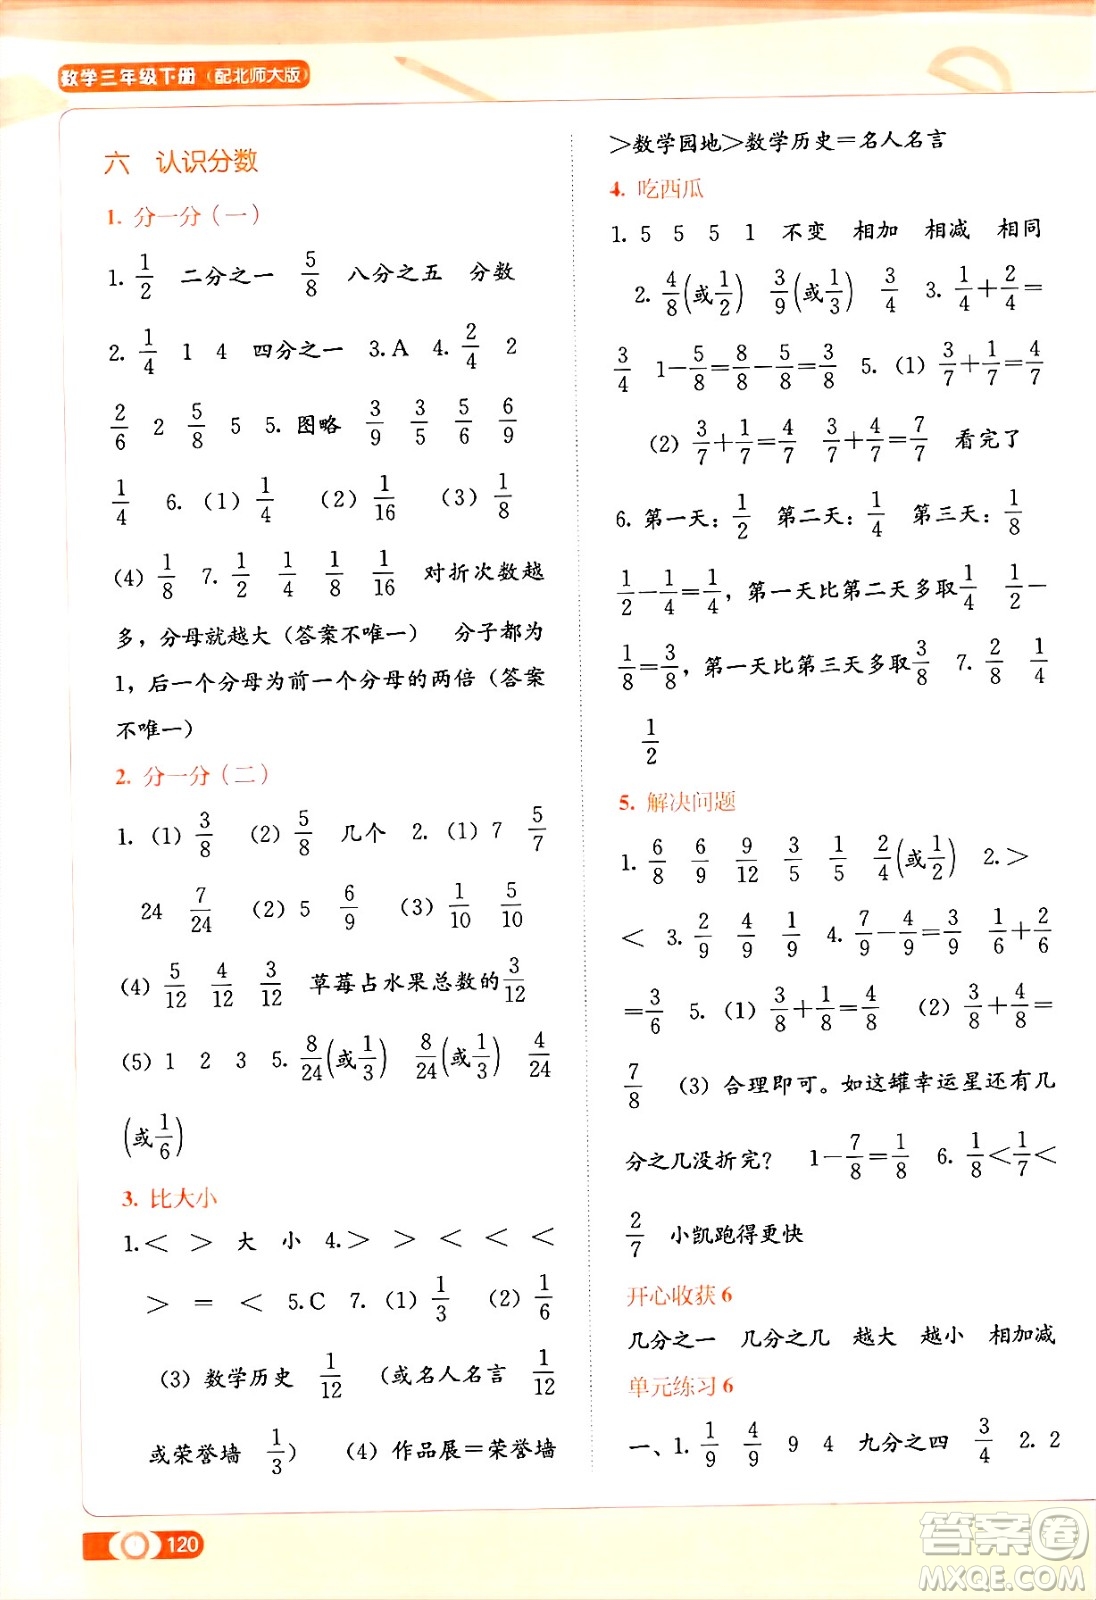 数学三年级下册(配北师大版)
六 认识分数
1. 分一分(一)
1. 1/2 二分之一 5/8 八分之五 分数
2. 1/4 1 4 四分之一 3.A 4. 2/4 2
2/6 2 5/8 5 5. 图略 3/9 3/5 5/6 6/9
1/4 6. (1) 1/4 (2) 1/16 (3) 1/8
(4) 1/8 7. 1/2 1/4 1/8 1/16 对折次数越
多，分母就越大(答案不唯一) 分子都为
1，后一个分母为前一个分母的两倍(答案
不唯一)
2. 分一分(二)
1. (1) 3/8 (2) 5/8 几个 2. (1) 7 5/7
24 7/24 (2) 5 6/9 (3) 1/10 5/10
(4) 5/12 4/12 3/12 草莓占水果总数的3/12
(5) 1 2 3 5. 8/24(或1/3) 8/24(或1/3) 4/24
(或1/6)
3. 比大小
1.< > 大 小 4.> > < < <
> = < 5.C 7. (1) 1/3 (2) 1/6
(3) 数学历史 1/12 (或名人名言 1/12
或荣誉墙 1/3) (4) 作品展=荣誉墙
>数学园地>数学历史=名人名言
4. 吃西瓜
1. 5 5 5 1 不变 相加 相减 相同
2. 4/8(或1/2) 3/9(或1/3) 3/4 3. 1/4+2/4=
3/4 1-5/8=8/8-5/8=3/8 5. (1) 3/7+1/7=4/7
(2) 3/7+1/7=4/7 3/7+4/7=7/7 看完了
6. 第一天：1/2 第二天：1/4 第三天：1/8
1/2-1/4=1/4，第一天比第二天多取1/4 1/2-
1/8=3/8，第一天比第三天多取3/8 7. 2/8 1/4
1/2
5. 解决问题
1. 6/8 6/9 9/12 3/5 1/5 2/4(或1/2) 2.>
< 3. 2/9 4/9 1/9 4. 7/9-4/9=3/9 1/6+2/6
=3/6 5. (1) 3/8+1/8=4/8 (2) 3/8+4/8=
7/8 (3) 合理即可。如这罐幸运星还有几
分之几没折完？ 1-7/8=1/8 6. 1/8<1/7<
2/7 小凯跑得更快
开心收获6
几分之一 几分之几 越大 越小 相加减
单元练习6
一、1. 1/9 4/9 9 4 九分之四 3/4 2. 2
120
答案卷
WWW.MXQE.COM